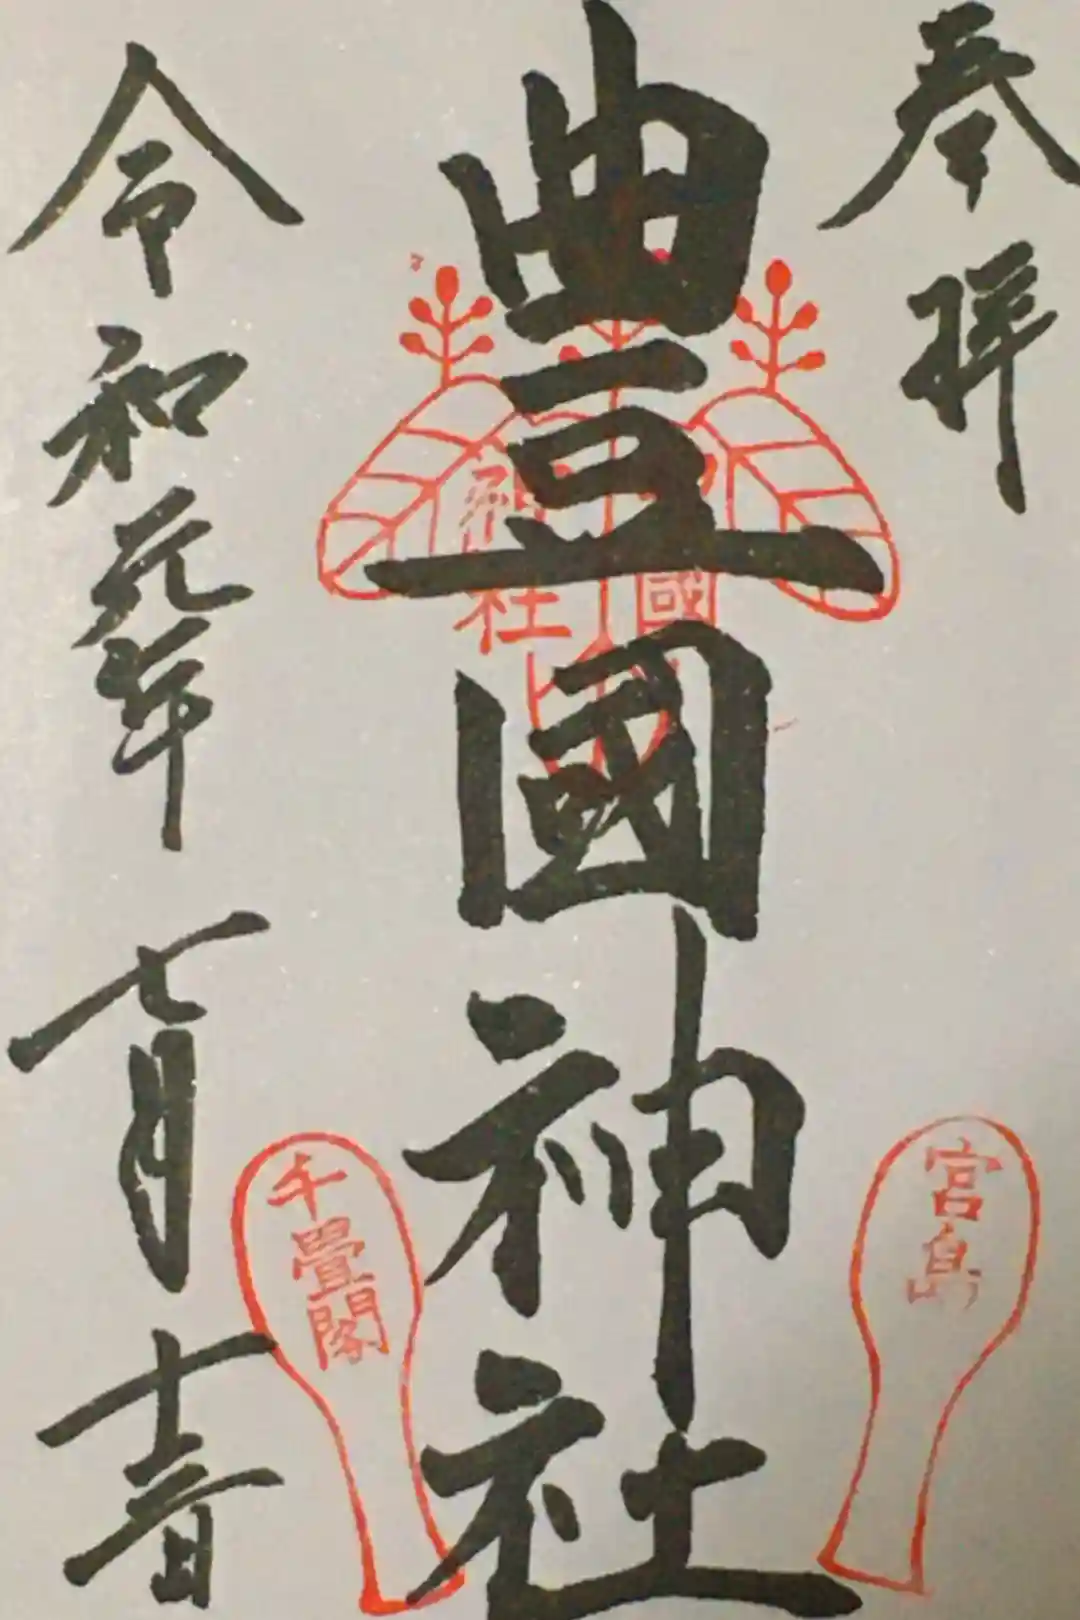 奉拝
宮島
豊國神社
國
神社
千畳閣
令和元年 七月 十 日